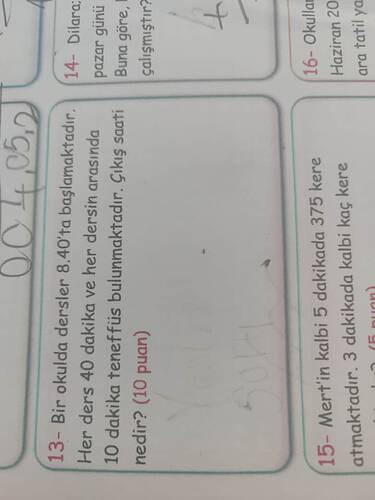 14- Dilara;
pazar günü
Buna göre,
çalışmıştır?
13- Bir okulda dersler 8.40'ta başlamaktadır.
Her ders 40 dakika ve her dersin arasında
10 dakika teneffüs bulunmaktadır. Çıkış saati
nedir? (10 puan)
16- Okullar
Haziran 20
ara tatil ya
15- Mert'in kalbi 5 dakikada 375 kere
atmaktadır. 3 dakikada kalbi kaç kere
(5 puan)